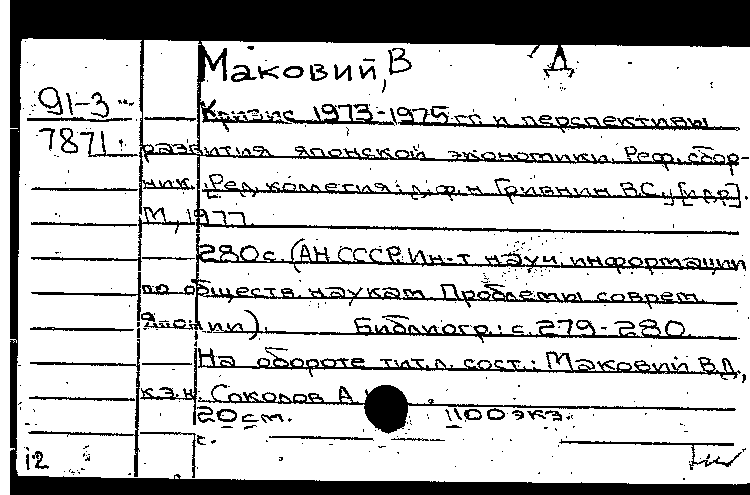 Маковий, В Д
91-3
7871
Кризис 1973-1975 гг и перспективы
развития японской экономики. Реф. сбор-
ник. Ред. коллегия: д.ф.н Гривнин В.С. и [и др].
М., 1977.
280 с. (АН СССР. Ин-т науч. информации
по обществ. наукам. Проблемы соврем.
Японии). Библиогр.: с. 279-280.
На обороте тит. л. сост.: Маковий В.Д.,
к.э.н. Соколов А
20 см. 1100 экз.
с.
12